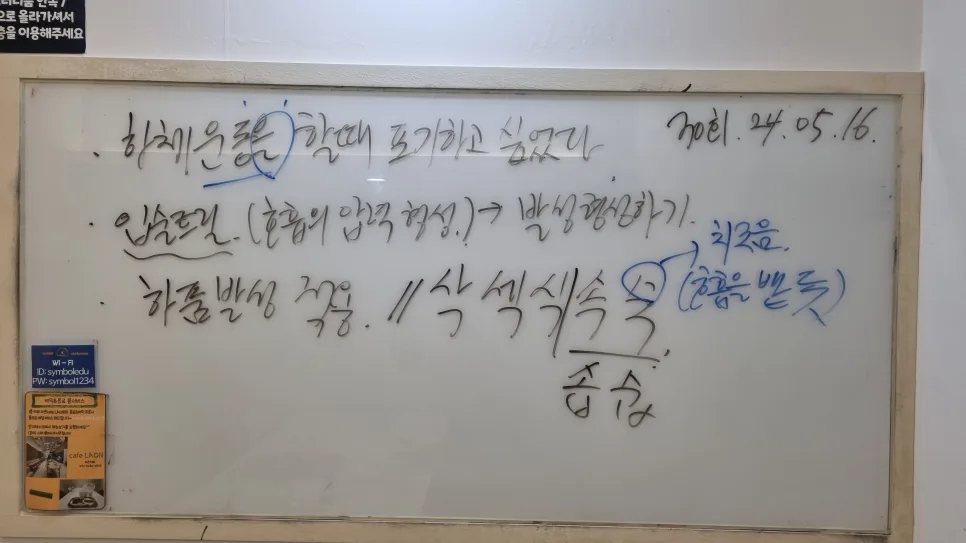 으로 올라가셔서
층을 이용해주세요
30회. 24. 05. 16.
· 하체운동을 할때 포기하고 싶었다
· 입술트릴. (호흡의 압력 형성.) → 발성형성하기.
· 하품발성 적용. // 삭 섹 식 / 속 숙 → 치조음.
(호흡을 뱉듯)
좁 숩
WI-FI
ID: symboledu
PW: symbol1234
cafe LAON